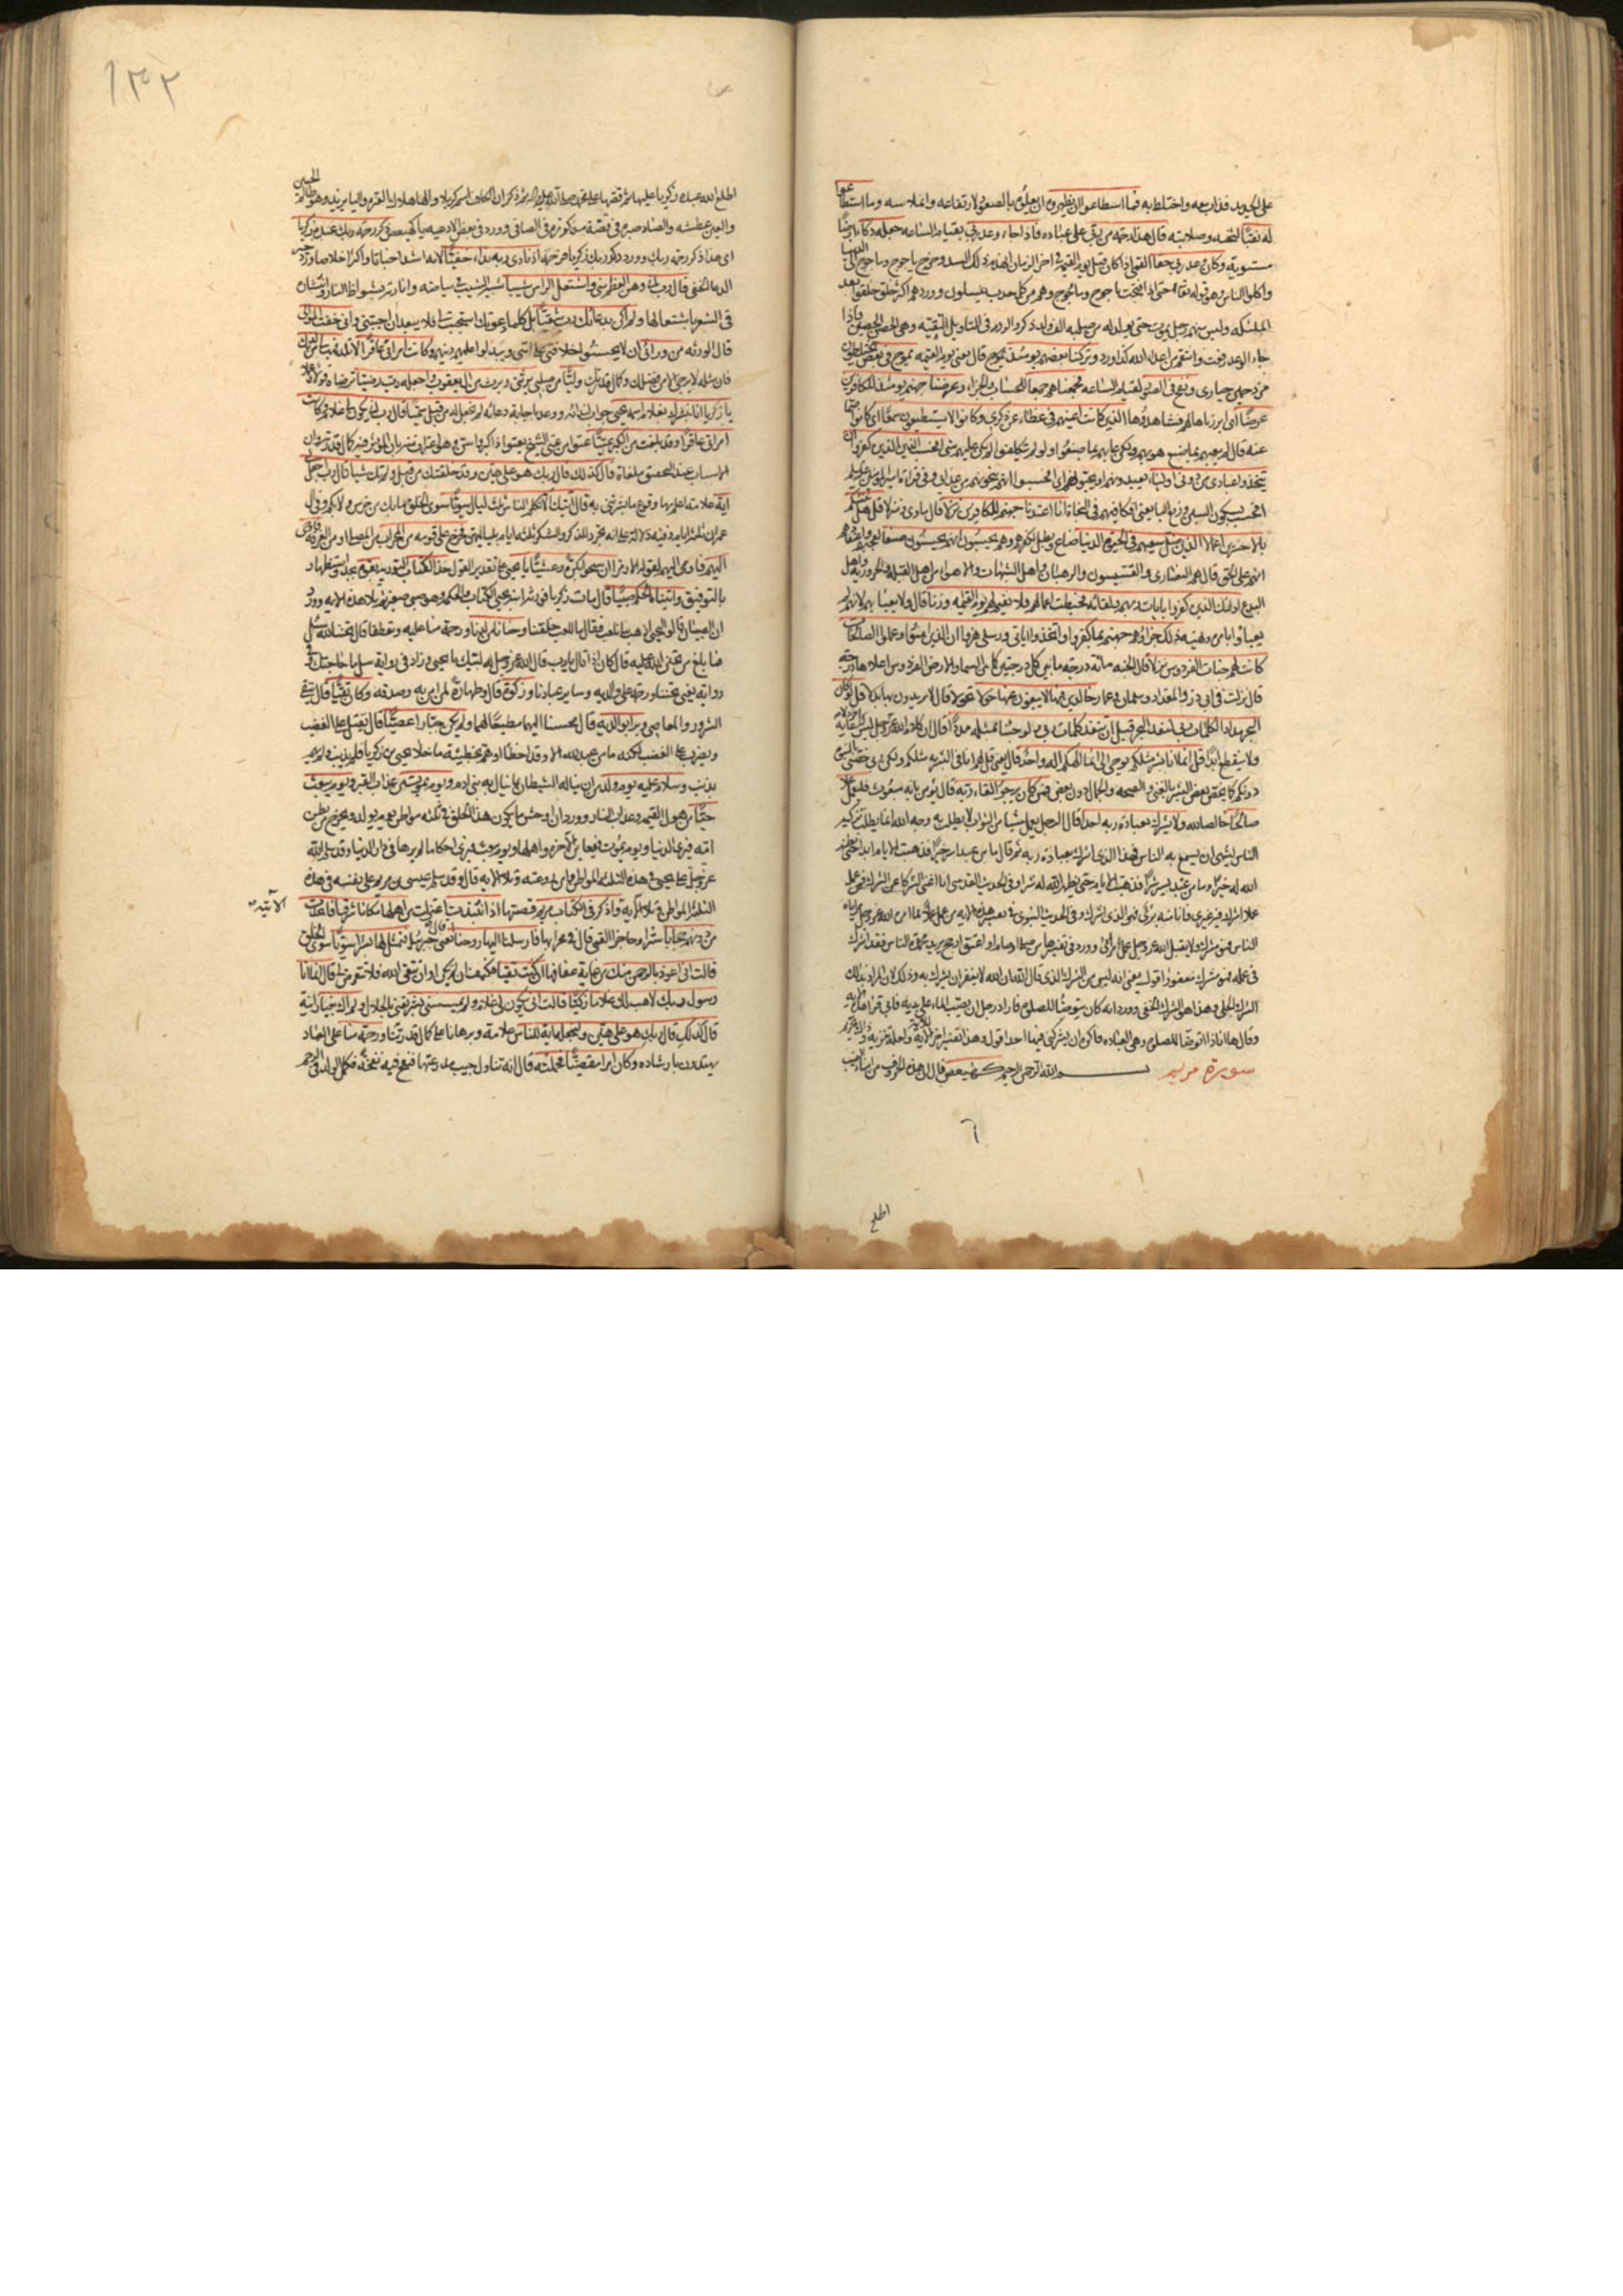 على الحديد فذاب معه واختلط به فما اسطاعوا ان يظهروه ان يعلوه بالصعود لارتفاعه وانملاسه وما استطاعوا
له نقبا لثخنه وصلابته قال هذا رحمة من ربي على عباده فاذا جاء وعد ربي بقيام الساعة جعله دكاء ارضا
مستوية وكان وعد ربي حقا القمي اذا كان قبل يوم القيمة في اخر الزمان انهدم ذلك السد وخرج ياجوج وماجوج الى الدنيا
واكلوا الناس وهو قوله تعالى حتى اذا فتحت ياجوج وماجوج وهم من كل حدب ينسلون وورد هم اكثر خلق خلقوا بعد
الملئكة وليس منهم رجل يموت حتى يولد له من صلبه الف ولد ذكر والردم في التاويل التقية وهي الحصن الحصين فاذا
جاء الوعد رفعت وانتقم من اعداء الله كذا ورد وتركنا بعضهم يومئذ يموج قال يعني يوم القيمة يموج في بعض يختلطون
مزدحمين حيارى ونفخ في الصور لقيام الساعة فجمعناهم جمعا للحساب والجزاء وعرضنا جهنم يومئذ للكافرين
عرضا اي ابرزناها لهم فشاهدوها الذين كانت اعينهم في غطاء عن ذكري وكانوا لا يستطيعون سمعا اي كانوا صما
عنه قال لم يعبهم بما صنع هو بهم ولكن عابهم بما صنعوا ولو لم يتكلفوا لم يكن عليهم شيء افحسب الذين كفروا ان
يتخذوا عبادي من دوني اولياء
افحسب بسكون السين ورفع الباء يعني افكافيهم في النجاة انا اعتدنا جهنم للكافرين نزلا قال ماوى ومنزلا قل هل ننبئكم
بالاخسرين اعمالا الذين ضل سعيهم في الحيوة الدنيا ضاع وبطل لكفرهم وهم يحسبون انهم يحسنون صنعا
انهم على الحق قال هم النصارى والقسيسون والرهبان واهل الشبهات والاهواء من اهل القبلة والحرورية واهل
البدع اولئك الذين كفروا بايات ربهم ولقائه فحبطت اعمالهم فلا نقيم لهم يوم القيمة وزنا قال ولا يعبأ بهم لانهم لم
يعباوا بامره ونهيه ذلك جزاؤهم جهنم بما كفروا واتخذوا اياتي ورسلي هزوا ان الذين امنوا وعملوا الصالحات
كانت لهم جنات الفردوس نزلا قال الجنة مائة درجة ما بين كل درجتين كما بين السماء والارض الفردوس اعلاها درجة
قال نزلت في ابي ذر والمقداد وسلمان وعمار خالدين فيها لا يبغون عنها حولا تحولا قال لا يريدون بها بدلا قل لو كان
البحر مدادا لكلمات ربي لنفد البحر قبل ان تنفد كلمات ربي ولو جئنا بمثله مددا قال ان كلام الله عز وجل ليس له اخر ولا غاية
ولا ينقطع ابدا قل انما انا بشر مثلكم يوحى الي انما الهكم اله واحد قال يعني قل لهم انا في البشرية مثلكم ولكن ربي خصني بالنبوة
دونكم كما يخص بعض البشر بالغنى والصحة والجمال دون بعض فمن كان يرجو لقاء ربه قال يؤمن بانه مبعوث فليعمل عملا
صالحا خالصا لله ولا يشرك بعبادة ربه احدا قال الرجل يعمل شيئا من الثواب لا يطلب به وجه الله انما يطلب تزكية
الناس يشتهي ان يسمع به الناس فهذا الذي اشرك بعبادة ربه ثم قال ما من عبد اسر خيرا فذهبت الايام ابدا حتى يظهر
الله له خيرا وما من عبد يسر شرا فذهبت الايام حتى يظهر الله له شرا وفي الحديث القدسي انا اغنى الشركاء عن الشرك فمن عمل
عملا اشرك فيه غيري فانا منه بريء فهو الذي اشرك وفي الحديث النبوي في تفسير هذه الاية من عمل عملا مما امر الله عز وجل مراياة
الناس فهو مشرك ولا يقبل الله عز وجل عمل مرائي وورد في تفسيرها من صلى او صام او اعتق او حج يريد محمدة الناس فقد اشرك
في عمله فهو مشرك مغفور اقول يعني انه ليس من الشرك الذي قال الله ان الله لا يغفر ان يشرك به وذلك لان المراد بذلك
الشرك الجلي وهذا هو الشرك الخفي وورد انه كان يتوضا للصلوة فاراد رجل ان يصب الماء على يديه فابى فقرا هذه الاية
وقال ها انا ذا اتوضا للصلوة وهي العبادة فاكره ان يشركني فيها احد اقول وهذا تفسير اخر للاية
سورة مريم بسم الله الرحمن الرحيم كهيعص قال ان هذه الحروف من انباء الغيب
اطلع
١٣٢
اطلع الله عبده زكريا عليها ثم قصها على محمد صلى الله عليه واله ثم ذكر ان الكاف اسم كربلا والهاء هلاك العترة والياء يزيد وهو ظالم الحسين
والعين عطشه والصاد صبره في قصة مذكورة في الصافي وورد في بعض الادعية يا كهيعص ذكر رحمة ربك عبده زكريا
اي هذا ذكر رحمة ربك اذ نادى ربه نداء خفيا لانه اشد اخباتا واكثر اخلاصا
الدعاء الخفي قال رب اني وهن العظم مني واشتعل الراس شيبا شبه الشيب في بياضه وانارته بشواظ النار وانتشاره
في الشعر باشتعالها ولم اكن بدعائك رب شقيا بل كلما دعوتك استجبت لي واني خفت الموالي
قال الورثة من ورائي ان لا يحسنوا خلافتي على امتي ويبدلوا عليهم دينهم وكانت امراتي عاقرا لا تلد فهب لي من لدنك
فان مثله لا يرجى الا من فضلك وكمال قدرتك وليا من صلبي يرثني ويرث من ال يعقوب واجعله رب رضيا ترضاه قولا وعملا
يا زكريا انا نبشرك بغلام اسمه يحيى جواب لندائه ووعد باجابة دعائه لم نجعل له من قبل سميا قال رب انى يكون لي غلام وكانت
امراتي عاقرا وقد بلغت من الكبر عتيا
الاسباب عند التحقيق ملغاة قال كذلك قال ربك هو علي هين وقد خلقتك من قبل ولم تك شيئا قال رب اجعل لي
اية علامة اعلم بها وقوع ما بشرتني به قال ايتك الا تكلم الناس ثلث ليال سويا سوي الخلق ما بك من خرس ولا بكم وفي ال
عمران ثلثة ايام وفيه دلالة على انه تجرد للذكر والشكر ثلثة ايام بلياليهن فخرج على قومه من المحراب من المصلى او من الغرفة فاوحى
اليهم فاومى اليهم لقوله الا رمزا ان سبحوا بكرة وعشيا يا يحيى على تقدير القول خذ الكتاب التورية بقوة بجد واستظهار
بالتوفيق واتيناه الحكم صبيا قال مات زكريا فورثه ابنه يحيى الكتاب والحكمة وهو صبي صغير ثم تلا هذه الاية وورد
ان الصبيان قالوا ليحيى اذهب بنا نلعب فقال ما للعب خلقنا وحنانا من لدنا ورحمة منا عليه وتعطفا قال تحنن الله سئل
فما بلغ من تحنن الله عليه قال كان اذا قال يا رب قال الله عز وجل له لبيك يا يحيى وزاد في رواية سل ما حاجتك وفي
رواية يعني تحننا ورحمة على والديه وسائر عبادنا وزكوة قال وطهارة لمن امن به وصدقه وكان تقيا قال يتقي
الشرور والمعاصي وبرا بوالديه قال محسنا اليهما مطيعا لهما ولم يكن جبارا عصيا قال يقتل على الغضب
ويضرب على الغضب لكنه ما من عبد لله الا وقد اخطا او هم بخطيئة ما خلا يحيى بن زكريا فلم يذنب ولم يهم
بذنب وسلام عليه يوم ولد من ان يناله الشيطان بما ينال به بني ادم ويوم يموت من عذاب القبر ويوم يبعث
حيا من هول القيمة وعذاب النار وورد ان اوحش ما يكون هذا الخلق في ثلثة مواطن يوم يولد ويخرج من بطن
امه فيرى الدنيا ويوم يموت فيعاين الاخرة واهلها ويوم يبعث فيرى احكاما لم يرها في دار الدنيا وقد سلم الله
عز وجل على يحيى في هذه الثلثة المواطن وامن روعته وتلا الاية قال وقد سلم عيسى بن مريم على نفسه في هذه
الثلثة المواطن وتلا الاية واذكر في الكتاب مريم قصتها اذ انتبذت اعتزلت من اهلها مكانا شرقيا فاتخذت
الآتية
من دونهم حجابا سترا وحاجزا القمي قال في محرابها فارسلنا اليها روحنا قال يعني جبرئيل فتمثل لها بشرا سويا سوي الخلق
قالت اني اعوذ بالرحمن منك من غاية عفافها ان كنت تقيا قال انما انا
رسول ربك لاهب لك غلاما زكيا قالت انى يكون لي غلام ولم يمسسني بشر ولم اك بغيا زانية
قال كذلك قال ربك هو علي هين ولنجعله اية للناس علامة وبرهانا على كمال قدرتنا ورحمة منا على العباد
يهتدون بارشاده وكان امرا مقضيا فحملته قال انه تناول جيب مدرعتها فنفخ فيه نفخة فكمل الولد في الرحم